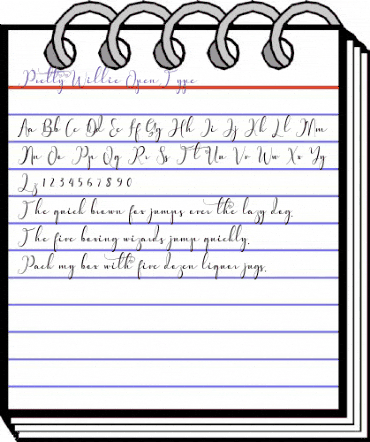 Pretty Willie Open Type
Aa Bb Cc Dd Ee Ff Gg Hh Ii Jj Kk Ll Mm
Nn Oo Pp Qq Rr Ss Tt Uu Vv Ww Xx Yy
Zz 1 2 3 4 5 6 7 8 9 0
The quick brown fox jumps over the lazy dog.
The five boxing wizards jump quickly.
Pack my box with five dozen liquor jugs.